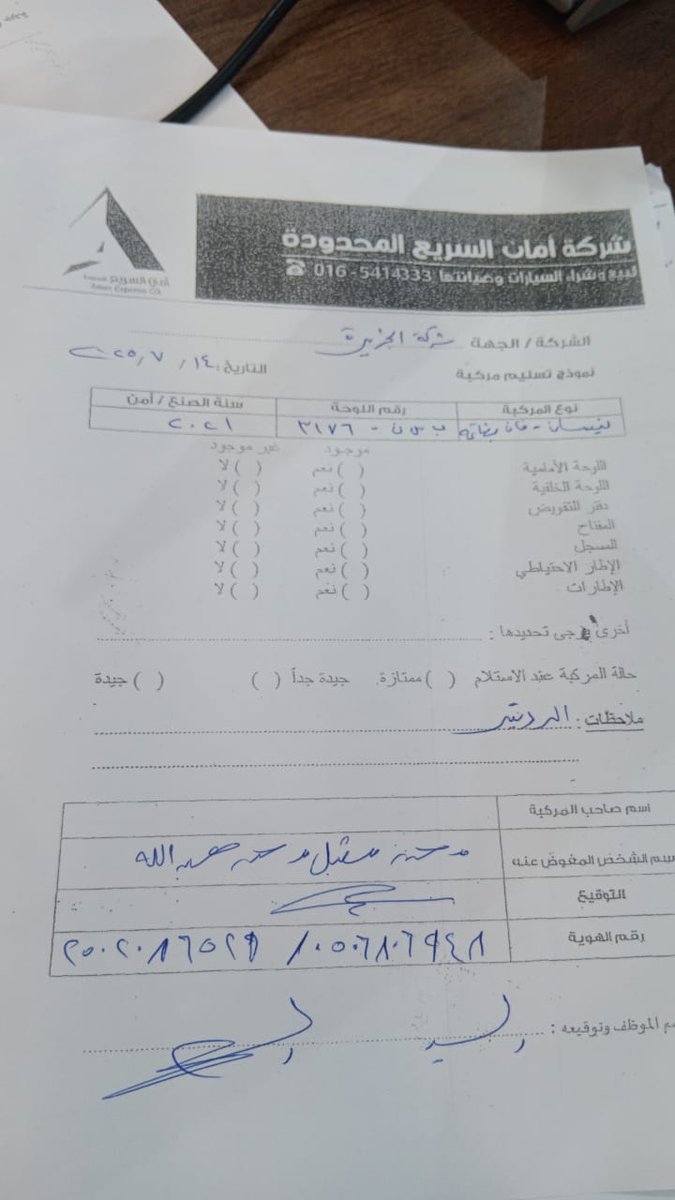 شركة أمان السريع المحدودة
لبيع وشراء السيارات وصيانتها 016 - 5414333 ☎
أمان السريع
Aman Express CO.
الشركة / الجهة شركة الجزيرة
نموذج تسليم مركبة التاريخ: ١٤ / ٧ / ٢٠٢٥
نوع المركبة رقم اللوحة سنة الصنع / أمن
نيسان - فان بضاعة ب س ن - ٣١٧٦ ٢٠٢١
موجود غير موجود
اللوحة الأمامية ( ) نعم ( ) لا
اللوحة الخلفية ( ) نعم ( ) لا
دفتر التفويض ( ) نعم ( ) لا
المفتاح ( ) نعم ( ) لا
المسجل ( ) نعم ( ) لا
الإطار الاحتياطي ( ) نعم ( ) لا
الإطارات ( ) نعم ( ) لا
أخرى يرجى تحديدها :
حالة المركبة عند الاستلام ( ) ممتازة. جيدة جداً ( ) ( ) جيدة
ملاحظات :
اسم صاحب المركبة
سم الشخص المفوض عنه
التوقيع
رقم الهوية
م الموظف وتوقيعه :